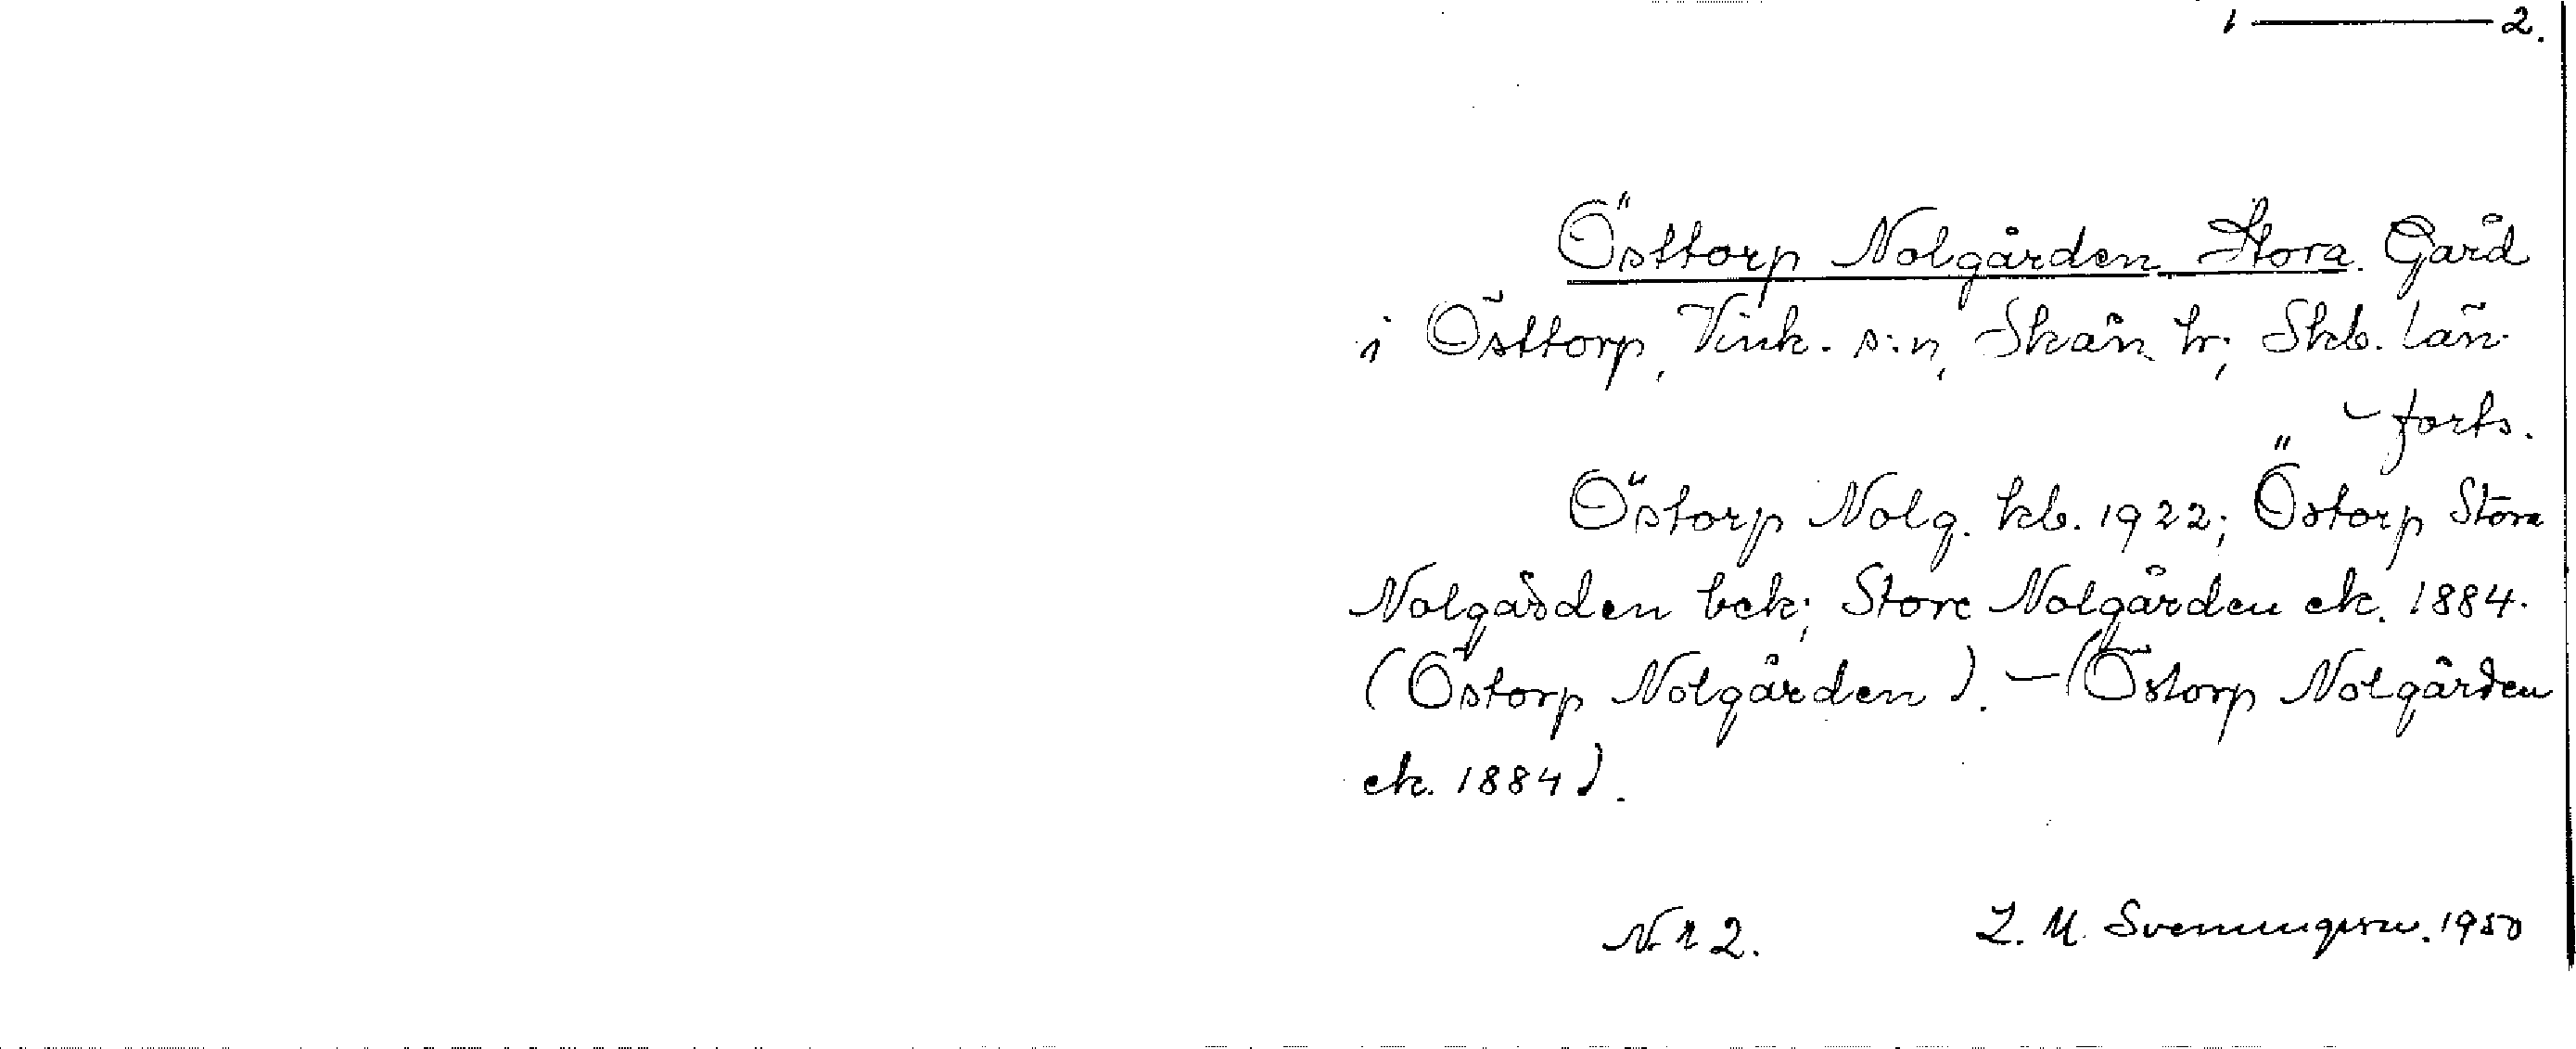 1 ——— 2.
Östtorp Nolgården Stora. Gård
i Östtorp, Vink. s:n, Skån. hr; Skb. län.
– forts.
Östorp Nolg. kb. 1922; Östorp Stora
Nolgården bek; Store Nolgården ek. 1884.
(Östorp Nolgården). – (Östorp Nolgården
ek. 1884).
Nr 2. L. M. Svenungsson. 1950